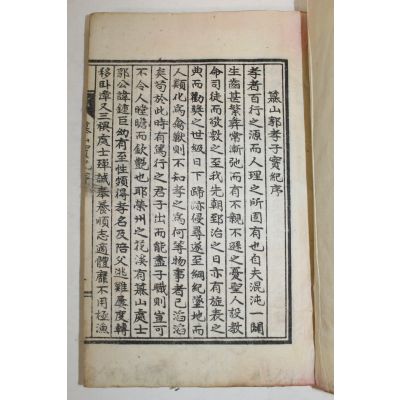 蕪山郭孝子實紀序
孝者百行之源而人理之所固有也自夫混沌一闢
生齒甚繁彛常漸弛而有不親不遜之憂聖人設教
命司徒而發敎之至我先朝郅治之日亦有旌表之
典而勸獎之世級日下蹄跡侵尋遂至綱紀墜地而
人類化爲禽獸則不知孝之爲何等物事者已滔滔
矣苟於此時有篤行之君子出而能盡子職則豈可
不令人瞠瞻而欽艷也耶榮州之花溪有蕪山處士
郭公諱臣幼有至性頻得孝名及陪父逃難屢度轉
移卧又三禩處士殫誠奉養順志適體靡不用極漁